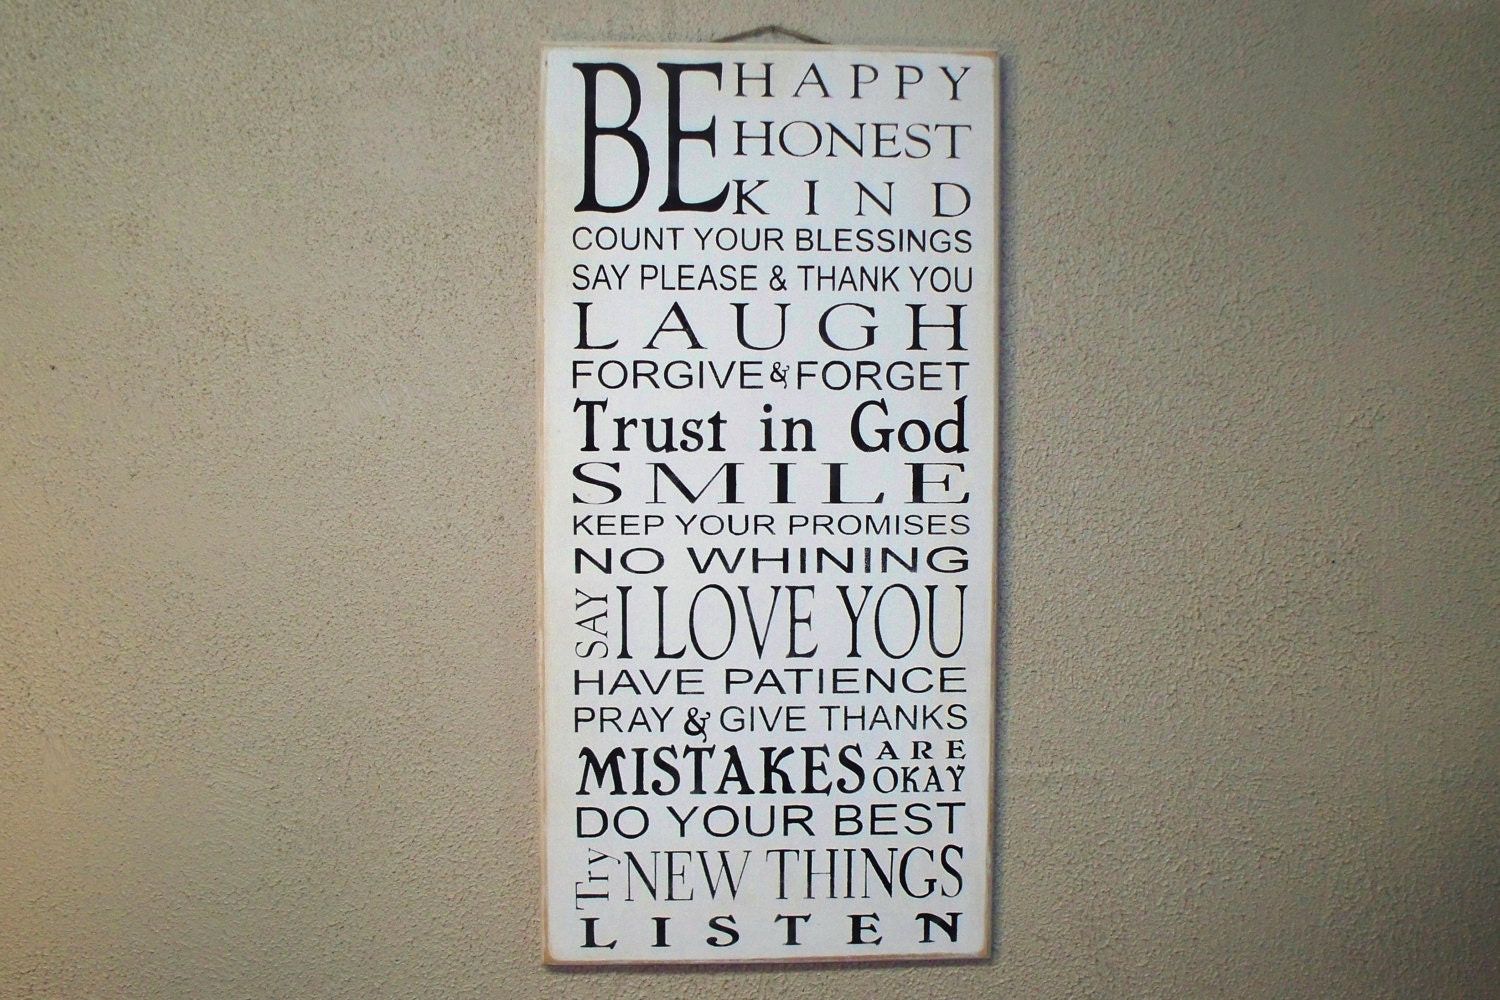 BE HAPPY
HONEST
KIND
COUNT YOUR BLESSINGS
SAY PLEASE & THANK YOU
LAUGH
FORGIVE & FORGET
Trust in God
SMILE
KEEP YOUR PROMISES
NO WHINING
SAY I LOVE YOU
HAVE PATIENCE
PRAY & GIVE THANKS
MISTAKES ARE
OKAY
DO YOUR BEST
Try NEW THINGS
LISTEN